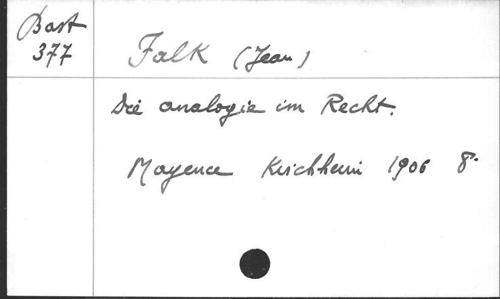 Bast
377
Falk (Jean)
Die analogie im Recht.
Mayence Kirchheim 1906 8°.